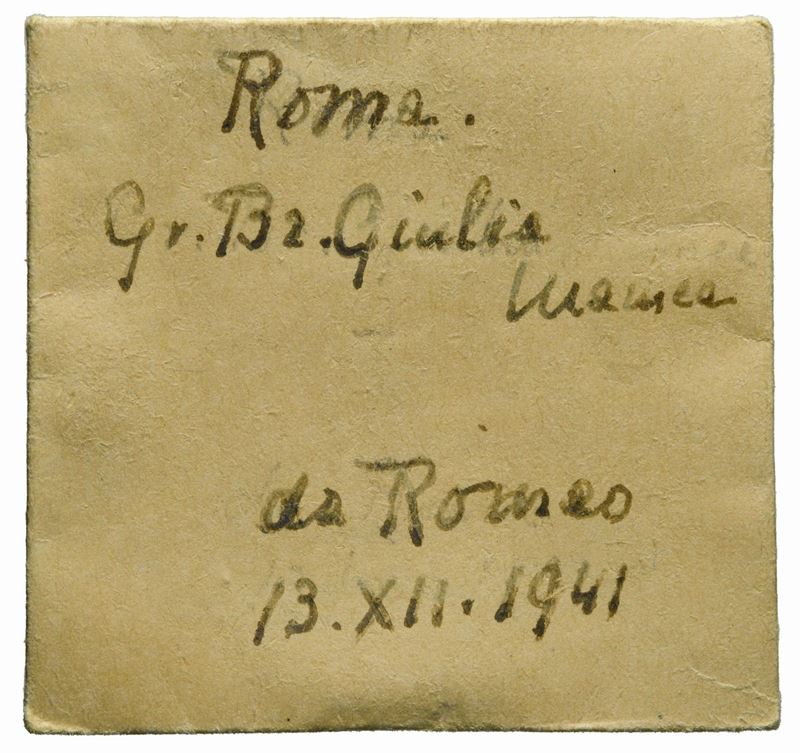 Roma.
Gr. Br. Giulia
Mamea
da Romeo
13.XII.1941